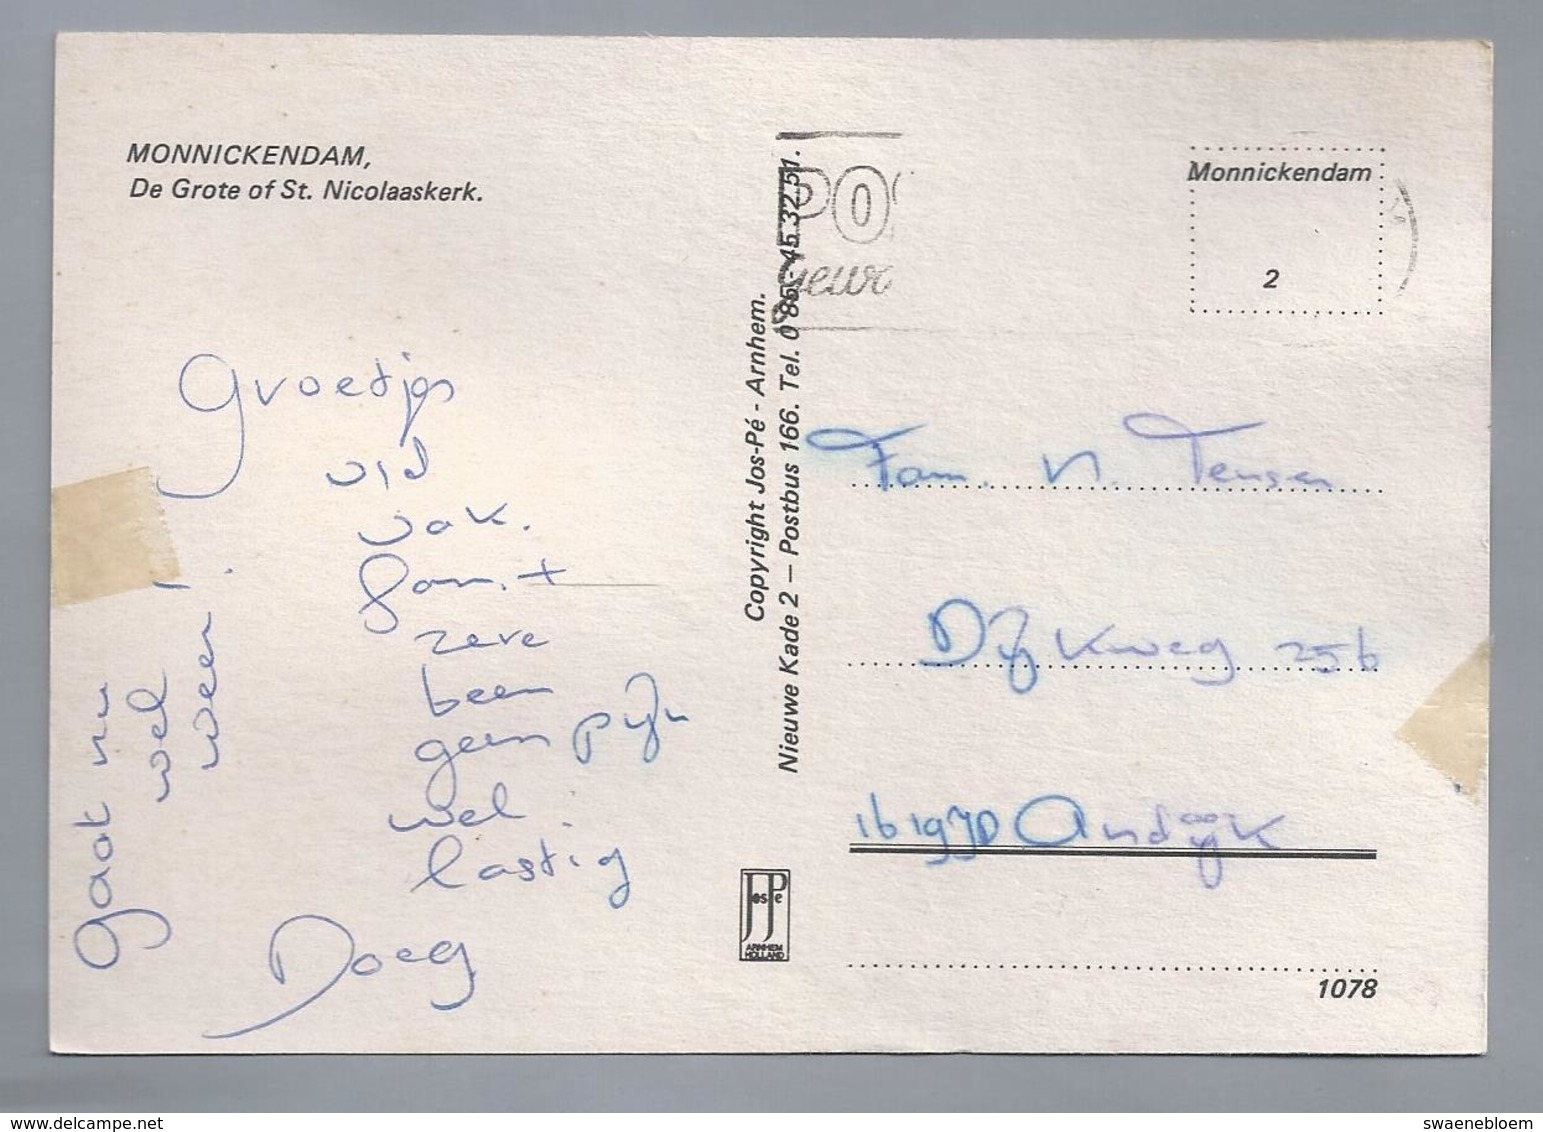 MONNICKENDAM,
De Grote of St. Nicolaaskerk.
Groetjes
vak.
Fam. +
zere
been
geen pijn
wel
lastig
Doeg
gaat nu
wel
weer!
Copyright Jos-Pé - Arnhem.
Nieuwe Kade 2 – Postbus 166. Tel. 085-45 32 51.
PO
Monnickendam
2
Fam. N. Tensen
Dijkweg 256
1619JD Andijk
JosPé
ARNHEM
HOLLAND
1078
http://www.delcampe.net
swaenebloem